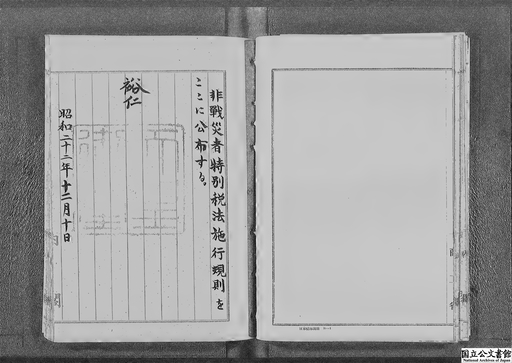 非戦災者特別税法施行規則を
ここに公布する。
裕仁
昭和二十二年十二月十日
国立公文書館
National Archives of Japan